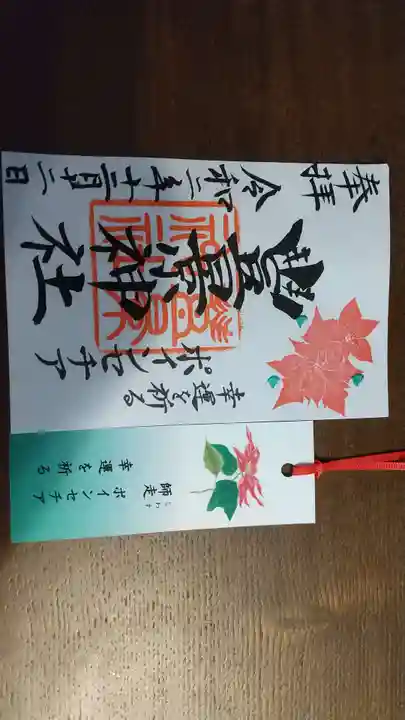 奉拝
令和二年十二月十二日
豐景神社
幸運を祈る
ポインセチア
師走
しわす
ポインセチア
幸運を祈る